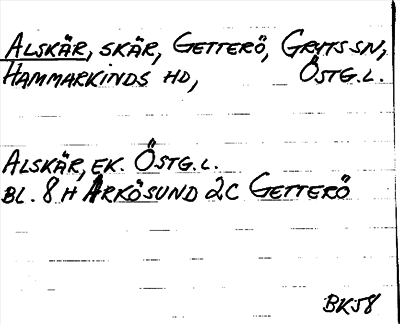 ALSKÄR, SKÄR, GETTERÖ, GRYTS SN,
HAMMARKINDS HD, ÖSTG.L.
ALSKÄR, EK. ÖSTG.L.
BL. 8 H ARKÖSUND 2C GETTERÖ
BK58